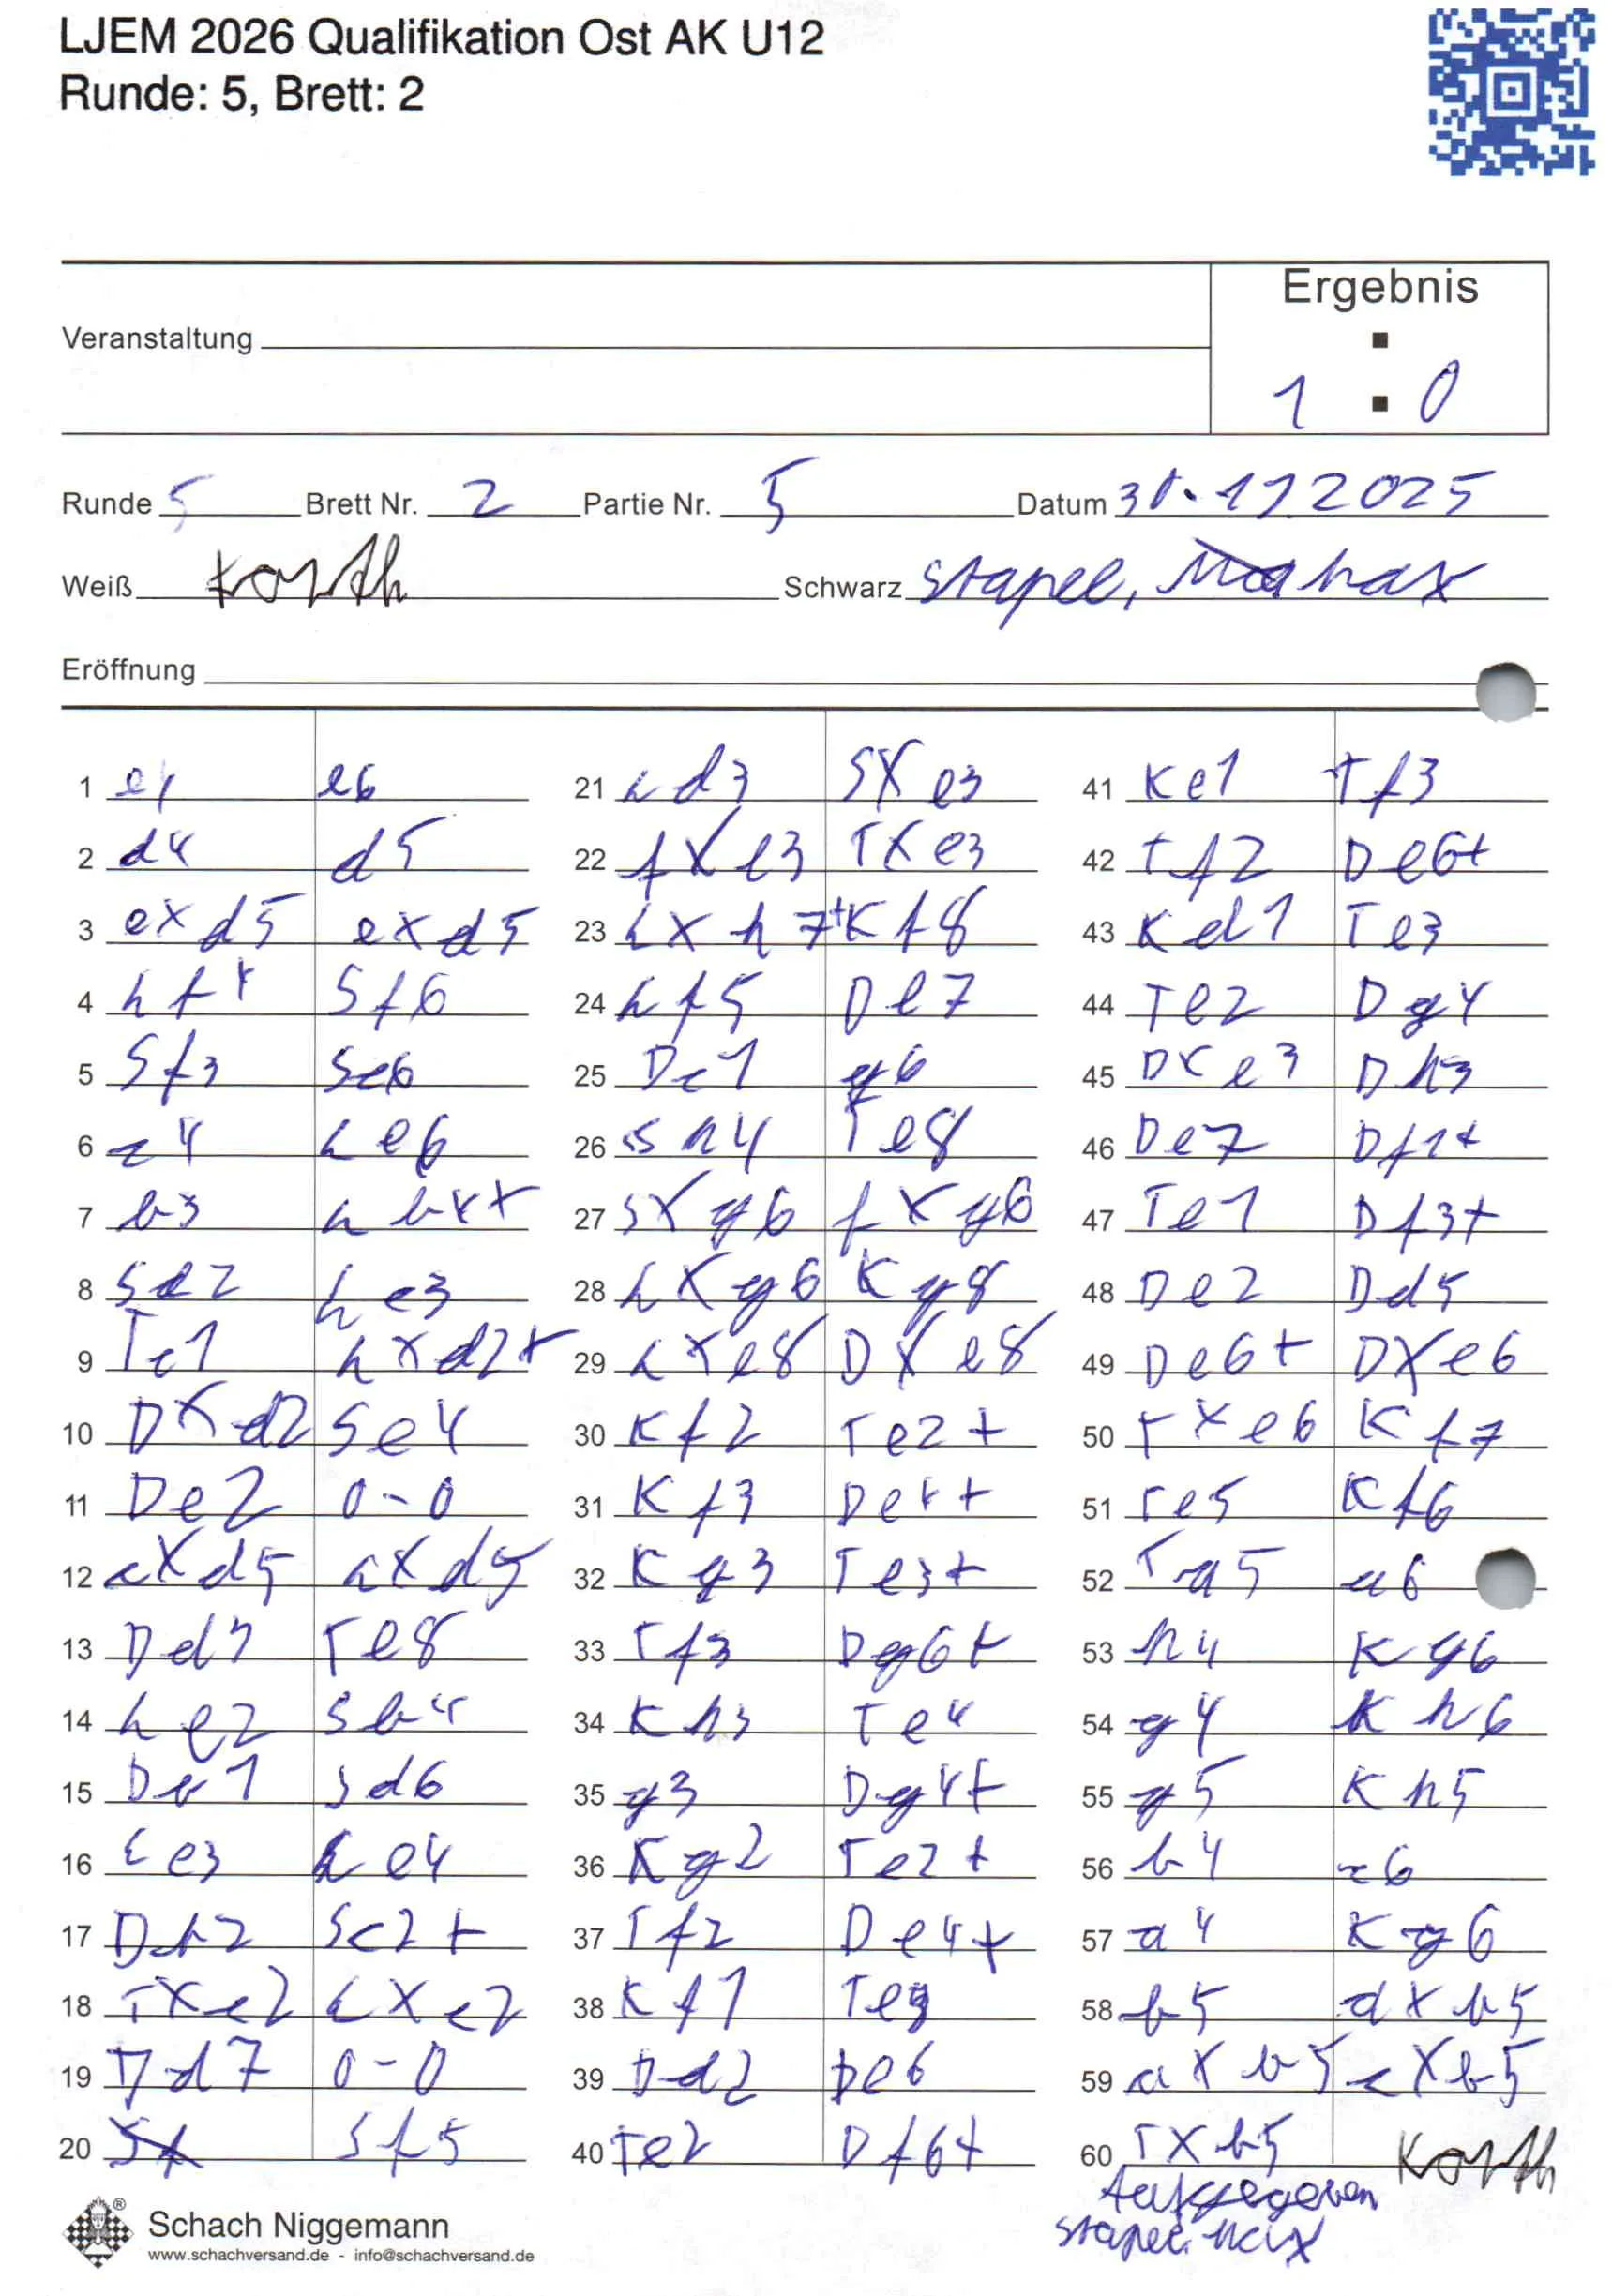 LJEM 2026 Qualifikation Ost AK U12
Runde: 5, Brett: 2
Ergebnis
Veranstaltung
1 : 0
Runde 5 Brett Nr. 2 Partie Nr. 5 Datum 30.11.2025
Weiß Korth Schwarz Stapel, Max
Eröffnung
1 e4 e6
2 d4 d5
3 exd5 exd5
4 Lf4 Sf6
5 Sf3 Sc6
6 c4 Le6
7 b3 Lb4+
8 Sd2 Lc3
9 Tc1 Lxd2+
10 Dxd2 Se4
11 De2 0-0
12 cxd5 Lxd5
13 Dd3 Te8
14 Le2 Sb4
15 Db1 Sd6
16 Le3 Le4
17 Db2 Sc2+
18 Txc2 Lxc2
19 Dd7 0-0
20 Sf5
21 Ld3 Sxe3
22 fxe3 Txe3
23 Lxh7+ Kf8
24 Lf5 De7
25 Dc1 g6
26 Sh4 Te8
27 Sxg6 fxg6
28 Lxg6 Kg8
29 Lxe8 Dxe8
30 Kf2 Te2+
31 Kf3 De4+
32 Kg3 Te3+
33 Tf3 Dg6+
34 Kh3 Te4
35 g3 Dg4+
36 Kg2 Te2+
37 Tf2 De4+
38 Kf1 Te3
39 Dd2 De6
40 Te2 Df6+
41 Ke1 Tf3
42 Tf2 De6+
43 Kd1 Te3
44 Te2 Dg4
45 Dxe3 Dh3
46 De7 Df1+
47 Te1 Df3+
48 De2 Dd5
49 De6+ Dxe6
50 Txe6 Kf7
51 Te5 Kf6
52 Ta5 a6
53 h4 Kg6
54 g4 Kh6
55 g5 Kh5
56 b4 c6
57 a4 Kg6
58 b5 axb5
59 axb5 cxb5
60 Txb5 Korth
Aufgegeben
Stapel. Max
Schach Niggemann
www.schachversand.de - info@schachversand.de